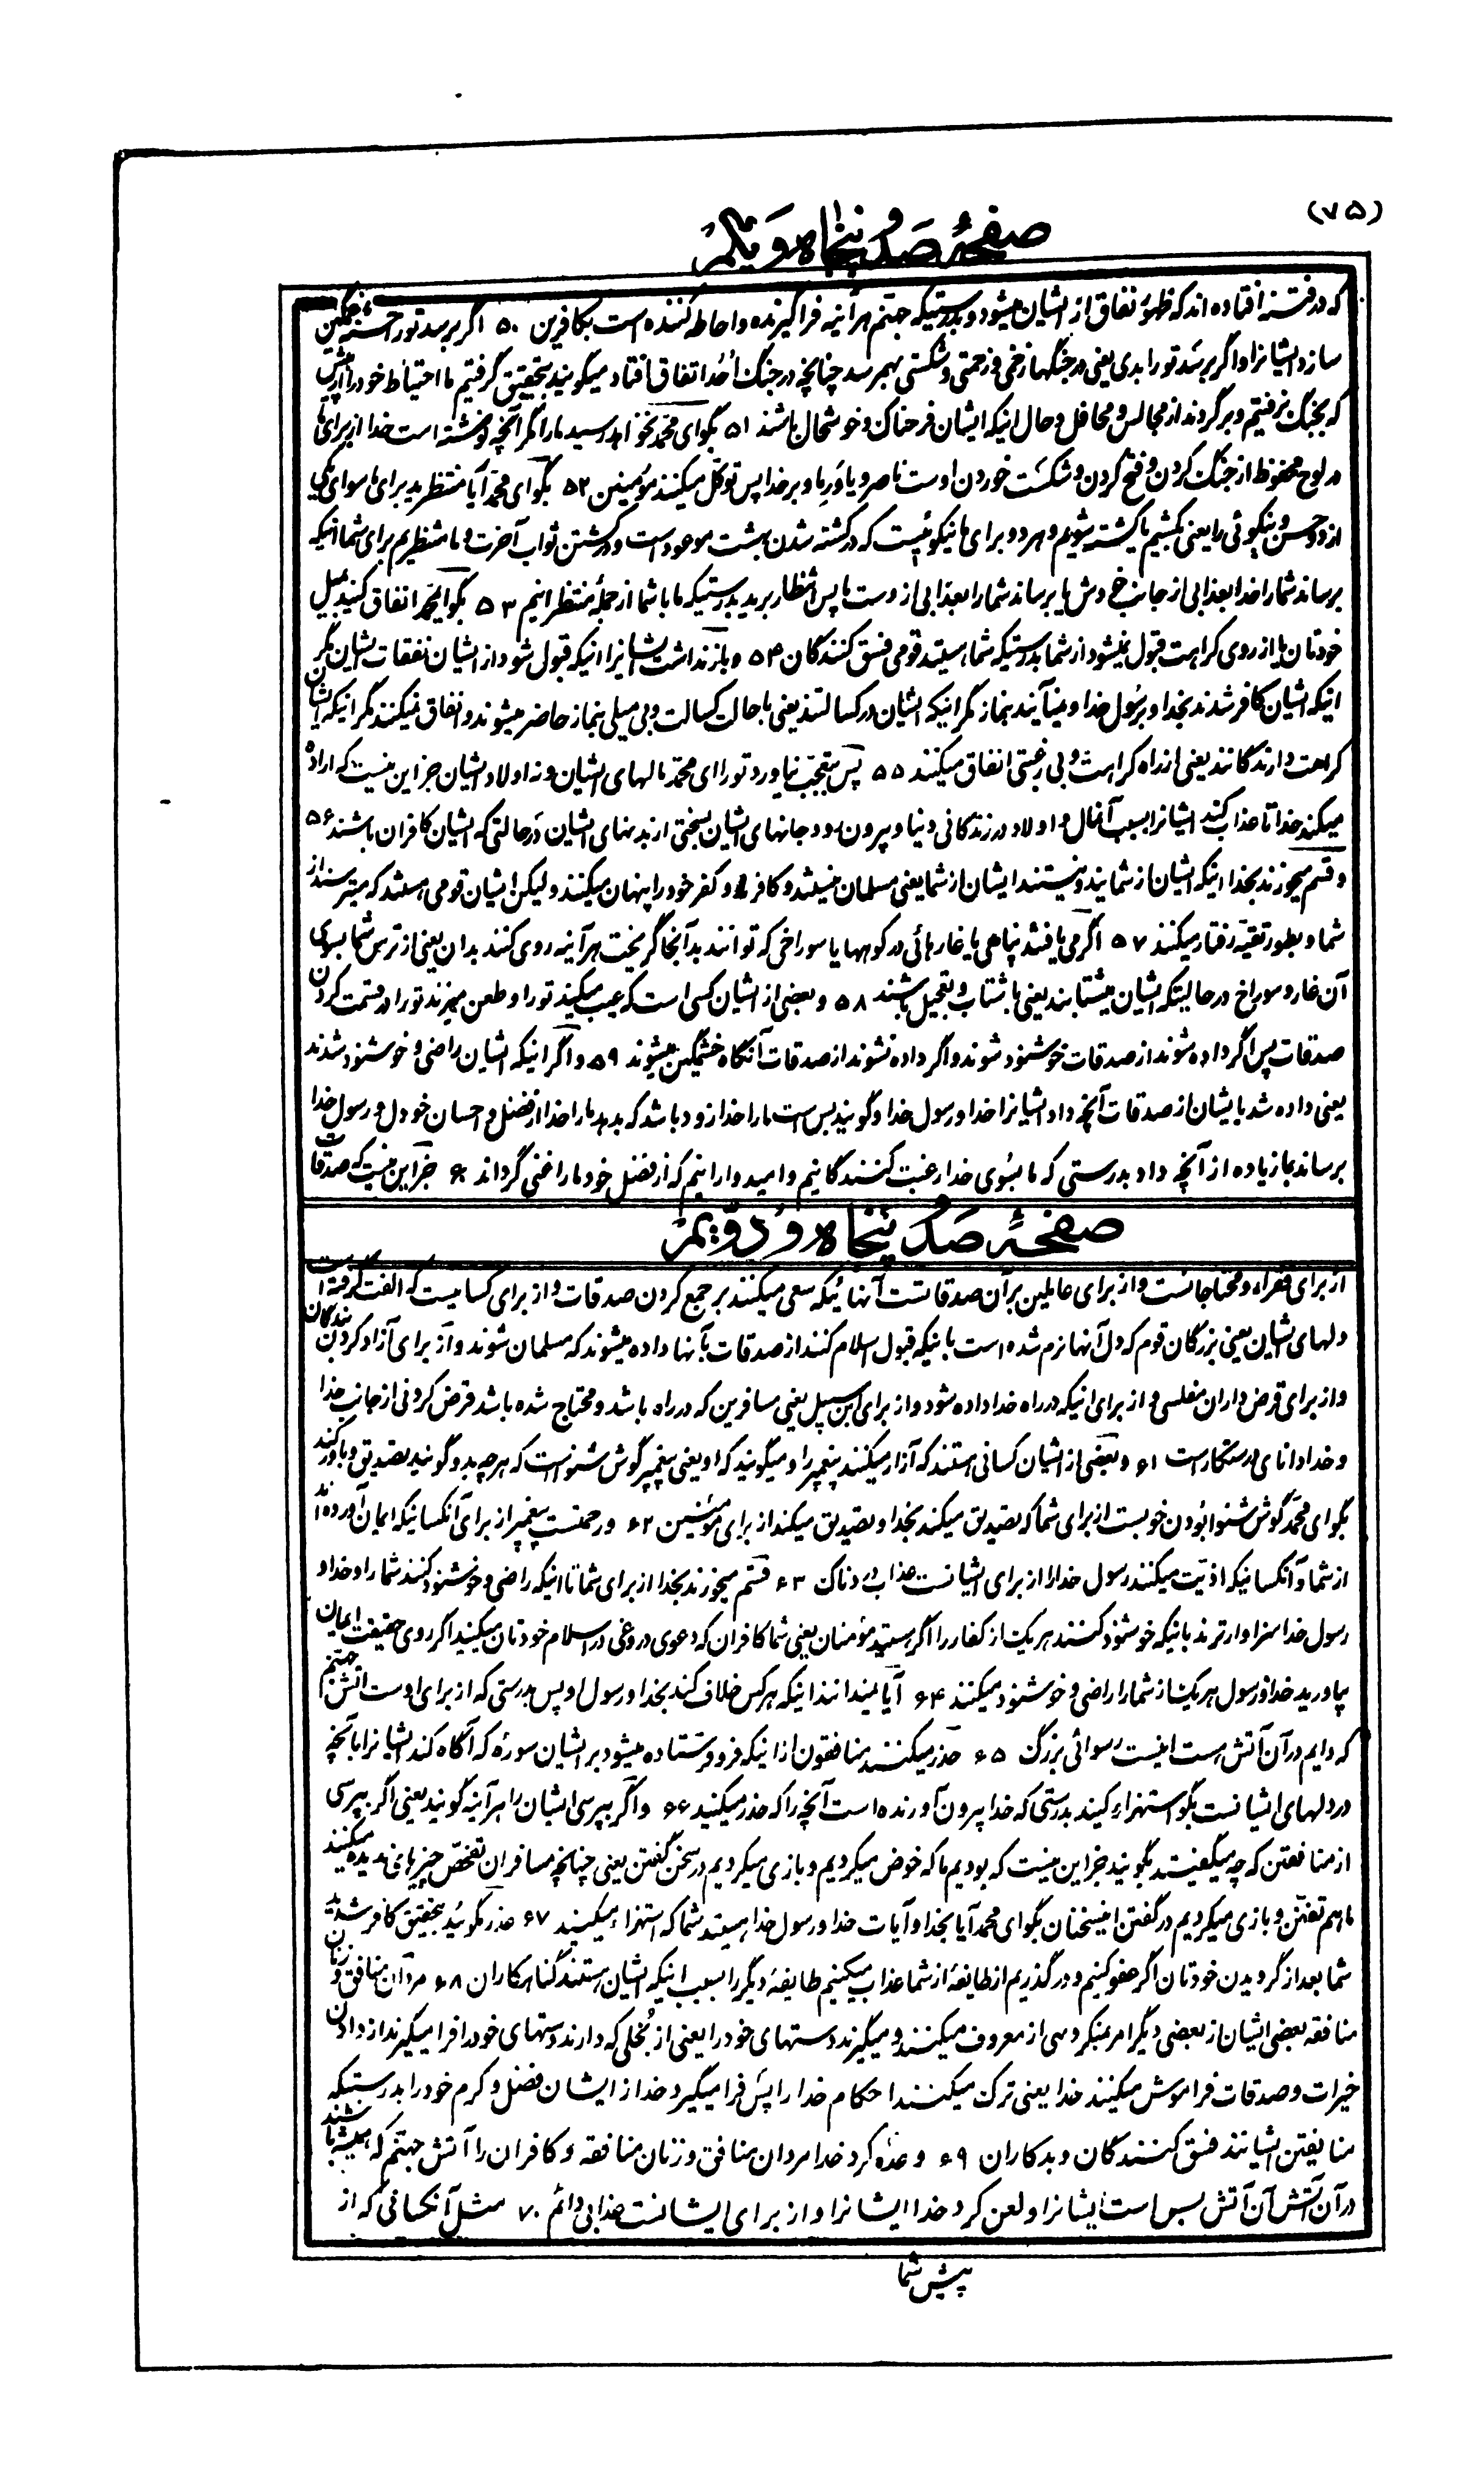 (۷۵)
صفحهٔ صد و پنجاه و یکم
که در فتنه افتاده اند که ظهور نفاق از ایشان میشود و بدرستیکه جهنم هرآینه فراگیرنده و احاطه کننده است بکافرین ۵۰ اگر برسد تو را حسنه غمگین
سازد ایشانرا و اگر برسد تو را بدی یعنی در جنگها زخمی و زحمتی و شکستی بهم رسد چنانچه در جنگ اُحُد اتفاق افتاد میگویند بتحقیق گرفتیم ما احتیاط خود را از پیش
که بجنگ نرفتیم و برگردند از مجالس و محافل و حال اینکه ایشان فرحناک و خوشحال باشند ۵۱ بگو ای محمد نخواهد رسید ما را مگر آنچه نوشته است خدا از برای ما
در لوح محفوظ از جنگ کردن و فتح کردن و شکست خوردن اوست ناصر و یاور ما و بر خدا پس توکل میکنند مؤمنین ۵۲ بگو ای محمد آیا منتظرید برای ما سوای یکی
از دو حسن و نیکوئی را یعنی بکشیم یا کشته شویم و هر دو برای ما نیکوئیست که در کشته شدن بهشت موعود است و در کشتن ثواب آخرت و ما منتظریم برای شما اینکه
برساند شما را خدا بعذابی از جانب خودش یا برساند شما را بعذابی از دست ما پس انتظار برید بدرستیکه ما با شما از جمله منتظرانیم ۵۳ بگو ایمحمد انفاق کنید بمیل
خودتان یا از روی کراهت قبول نمیشود از شما بدرستیکه شما هستید قومی فسق کنندگان ۵۴ و باز نداشت ایشانرا اینکه قبول شود از ایشان نفقات ایشان مگر
اینکه ایشان کافر شدند بخدا و برسول خدا و نمیآیند بنماز مگر اینکه ایشان در کسالتند یعنی با حالت کسالت و بی میلی بنماز حاضر میشوند و انفاق نمیکنند مگر اینکه ایشان
کراهت دارندگانند یعنی از راه کراهت و بی رغبتی انفاق میکنند ۵۵ پس بتعجب نیاورد تو را ای محمد مالهای ایشان و نه اولاد ایشان جز این نیست که اراده
میکند خدا تا عذاب کند ایشانرا بسبب آنمال و اولاد در زندگانی دنیا و بیرون رود جانهای ایشان بسختی از بدنهای ایشان در حالتی که ایشان کافران باشند ۵۶
و قسم میخورند بخدا اینکه ایشان از شمایند و نیستند ایشان از شما یعنی مسلمان نیستند و کافرند و کفر خود را پنهان میکنند و لیکن ایشان قومی هستند که میترسند از
شما و بطور تقیه رفتار میکنند ۵۷ اگر می یافتند پناهی یا غارهائی در کوهها یا سوراخی که توانند بدآنجا گریخت هرآینه روی کنند بدان یعنی از ترس شما بسوی
آن غار و سوراخ در حالیتکه ایشان میشتابند یعنی با شتاب و تعجیل باشند ۵۸ و بعضی از ایشان کسی است که عیب میکند تو را و طعن میزند تو را در قسمت کردن
صدقات پس اگر داده شوند از صدقات خوشنود شوند و اگر داده نشوند از صدقات آنگاه خشمگین میشوند ۵۹ و اگر اینکه ایشان راضی و خوشنود شدند
یعنی داده شد بایشان از صدقات آنچه داد ایشانرا خدا و رسول خدا و گویند بس است ما را خدا زود باشد که بدهد ما را خدا از فضل و احسان خود و رسول خدا
برساند بما زیاده از آنچه داد بدرستی که ما بسُوی خدا رغبت کنندگانیم و امیدوارانیم که از فضل خود ما را غنی گرداند ۶۰ جز این نیست که صدقات
صفحهٔ صد و پنجاه و دویم
از برای فقراء و محتاجانست و از برای عاملین بر آن صدقاتست آنهائیکه سعی میکنند بر جمع کردن صدقات و از برای کسانیست که الفت گرفته است
دلهای ایشان یعنی بزرگان قوم که دل آنها نرم شده است بانیکه قبول اسلام کنند از صدقات بآنها داده میشوند که مسلمان شوند و از برای آزاد کردن بندگان
و از برای قرض داران مفلسی و از برای اینکه در راه خدا داده شود و از برای ابن سبیل یعنی مسافرین که در راه باشد و محتاج شده باشد قرض کردنی از جانب خدا
و خدا دانای درستکار است ۶۱ و بعضی از ایشان کسانی هستند که آزار میکنند پیغمبر را و میگویند که او یعنی پیغمبر گوش شنو است که هر چه بدو گویند تصدیق و باور کند
بگو ای محمد گوش شنوا بودن خوبست از برای شما که تصدیق میکند بخدا و تصدیق میکند از برای مؤمنین ۶۲ و رحمتست پیغمبر از برای آنکسانیکه ایمان آورده اند
از شما و آنکسانیکه اذیت میکنند رسول خدا را از برای ایشانست عذاب دردناک ۶۳ قسم میخورند بخدا از برای شما تا اینکه راضی و خوشنود کنند شما را و خدا و
رسول خدا سزاوارترند بانیکه خوشنود کنند هر یک از کفار را اگر هستید مؤمنان یعنی شما کافران که دعوی دروغی در اسلام خودتان میکنید اگر روی حقیقت ایمان
بیاورید خدا و رسول هر یک از شما را راضی و خوشنود میکنند ۶۴ آیا نمیدانند اینکه هرکس خلاف کند بخدا و رسول او پس بدرستی که از برای اوست آتش جهنم
که دایم در آن آتش هست اینست رسوائی بزرگ ۶۵ حذر میکنند منافقون از اینکه فرو فرستاده میشود بر ایشان سوره که آگاه کند ایشانرا بآنچه
در دلهای ایشانست بگو استهزاء کنید بدرستی که خدا بیرون آورنده است آنچه را که حذر میکنید ۶۶ و اگر بپرسی ایشان را هرآینه گویند یعنی اگر بپرسی
از منافقین که چه میگفتید بگویند جز این نیست که بودیم ما که خوض میکردیم و بازی میکردیم در سخن گفتن یعنی چنانچه مسافران تفحص چیزهای ندیده میکنند
ما هم تفنن و بازی میکردیم در گفتن اینسخنان بگو ای محمد آیا بخدا و آیات خدا و رسول خدا هستید شما که استهزاء میکنید ۶۷ عذر مگوئید بتحقیق کافر شدید
شما بعد از گرویدن خودتان اگر عفو کنیم و در گذریم از طایفهٔ از شما عذاب میکنیم طایفهٔ دیگر را بسبب اینکه ایشان هستند گناهکاران ۶۸ مردان منافق و زنان
منافقه بعضی ایشان از بعضی دیگر امر بمنکر و نهی از معروف میکنند و میگیرند دستهای خود را یعنی از بُخلی که دارند دستهای خود را فرا میگیرند از دادن
خیرات و صدقات فراموش میکنند خدا یعنی ترک میکنند احکام خدا را پس فرا میگیرد خدا از ایشان فضل و کرم خود را بدرستیکه
منافقین ایشانند فسق کنندگان و بدکاران ۶۹ وعده کرد خدا مردان منافق و زنان منافقه و کافران را آتش جهنم که همیشه باشند
در آن آتش آن آتش بس است ایشانرا و لعن کرد خدا ایشانرا و از برای ایشانست عذابی دائم ۷۰ مثل آنکسانی که از
پیش شما